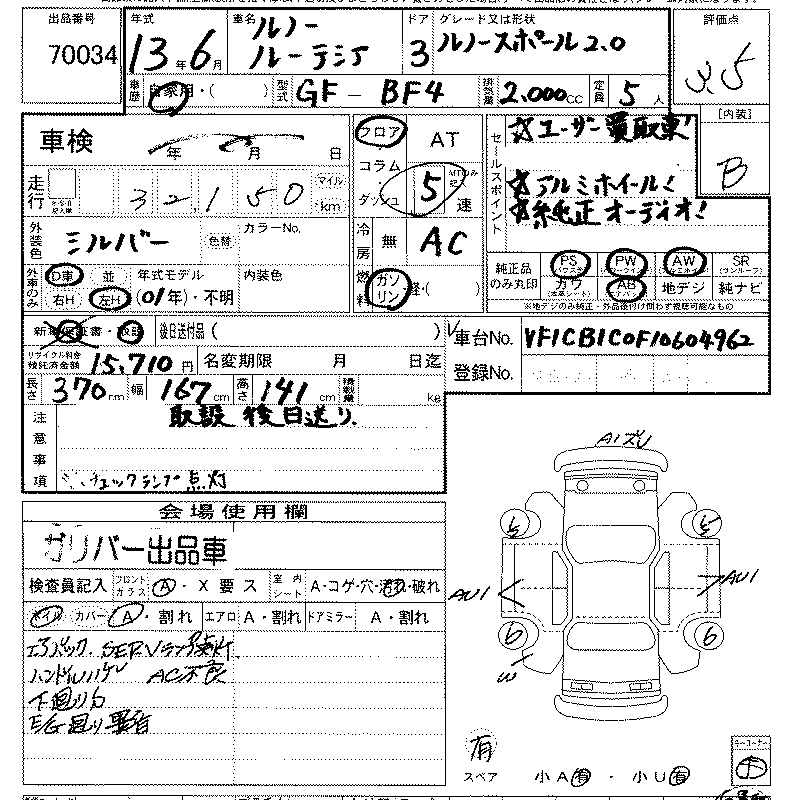 出品番号
70034
年式
13年6月
車名
ルノー
ルーテシア
ドア
3
グレード又は形状
ルノースポール2.0
評価点
3.5
車歴
自家用・( )
型式
GF-BF4
排気量
2.000cc
定員
5人
[内装]
B
車検
年 月 日
走行
32,150
マイル
km
フロア
コラム
ダッシュ
AT
5速
MTのみ記入
セールスポイント
☆ユーザー買取車!
☆アルミホイール!
☆純正オーディオ!
外装色
シルバー
色替
カラーNo.
冷房
無
AC
外車のみ
D車
並
右H
左H
年式モデル
(01年)・不明
内装色
燃料
ガソリン
軽・( )
純正品のみ丸印
PS
PW
AW
SR
カワ
AB
地デジ
純ナビ
※地デジのみ純正・外品後付け問わず視聴可能なもの
新車保証書・取説
後日送付品( )
車台No.
VF1CB1C0F10604962
リサイクル料金預託済金額
15,710円
名変期限 月 日迄
登録No.
長さ
370cm
幅
167cm
高さ
141cm
積載量
kg
注意事項
取説 後日送り.
チェックランプ点灯
会場使用欄
ガリバー出品車
検査員記入
フロントガラス
A・X要ス
室内シート
A・コゲ・穴・汚れ・破れ
ホイル
カバー
A・割れ
エアロ
A・割れ
ドアミラー
A・割れ
エアバック. SERVランプ点灯
ハンドルハゲ AC不良
下廻りカ
E/G廻り
A1ズレ
5
5
AU1
AU1
6
6
W
有
スペア
小A有・小U有
キーコーナー